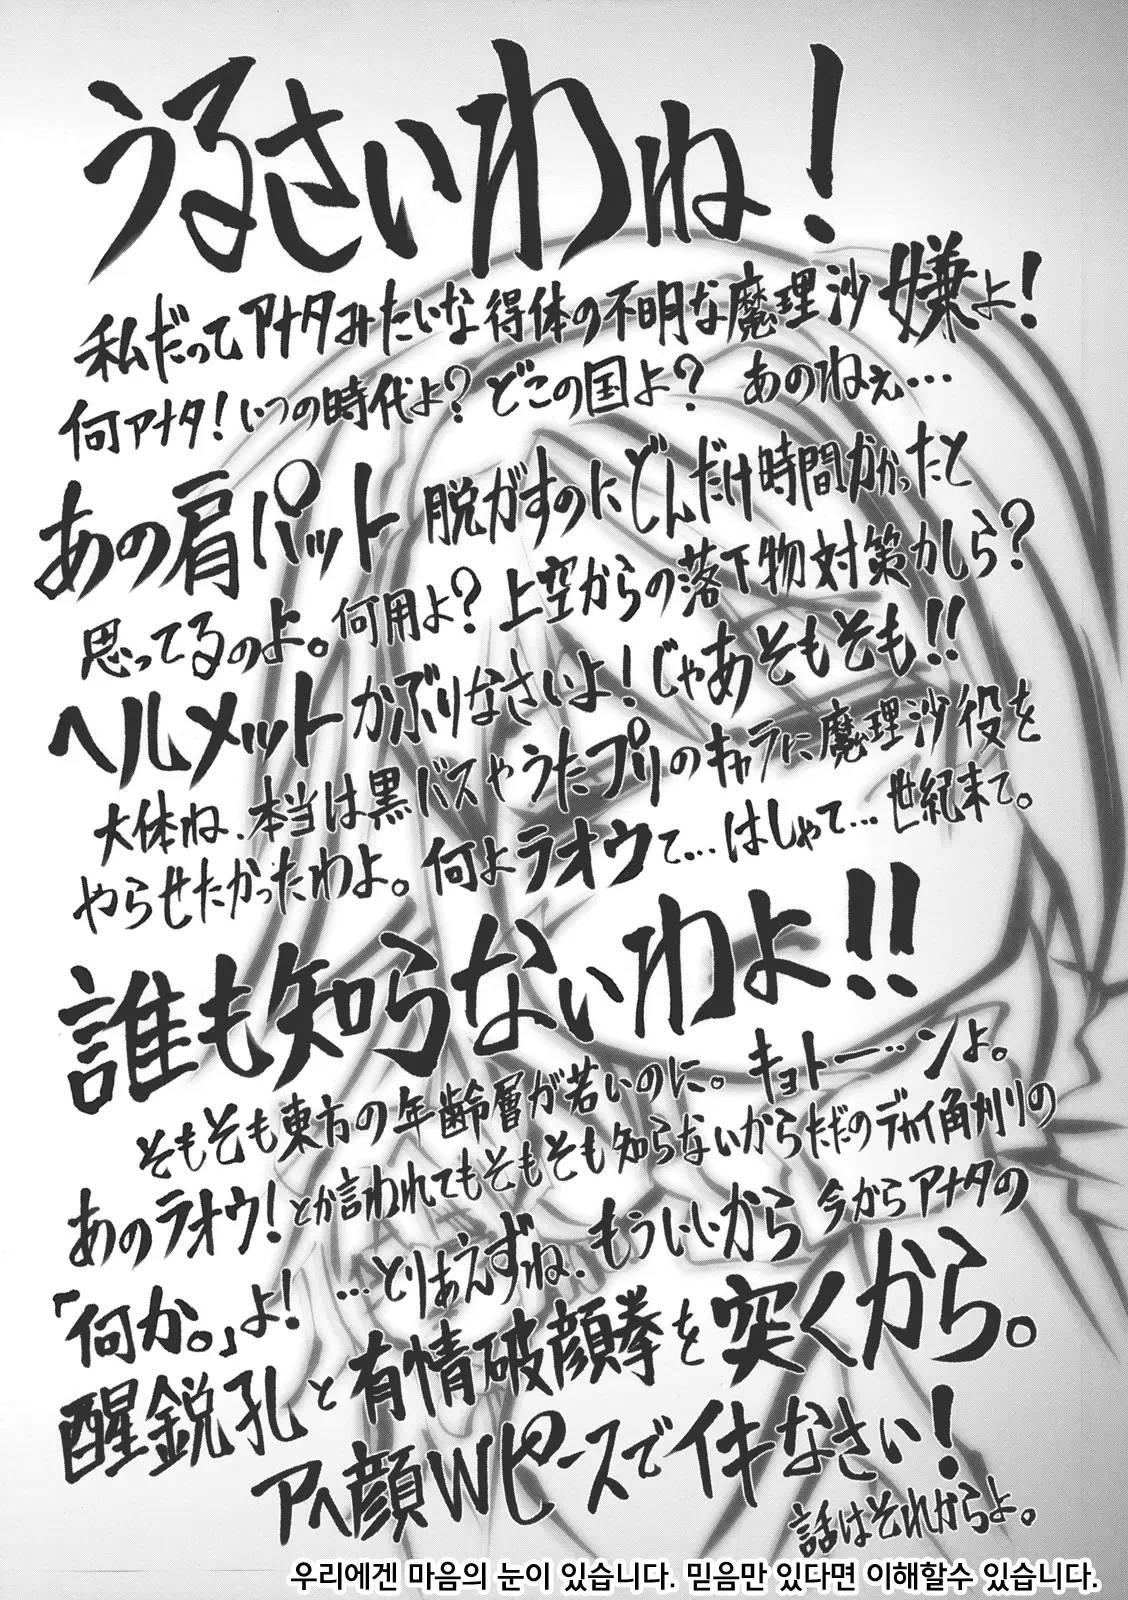 うるさいわね!
私だってアナタみたいな得体の不明な魔理沙嫌よ!
何アナタ!いつの時代よ?どこの国よ? あのねぇ…
あの肩パット脱がすのにどんだけ時間かかったと
思ってるのよ。何用よ?上空からの落下物対策かしら?
ヘルメットかぶりなさいよ!じゃあそもそも!!
大体ね、本当は黒バスやうたプリのキャラに魔理沙役を
やらせたかったわよ。何よラオウて…はしゃて…世紀末て。
誰も知らないわよ!!
そもそも東方の年齢層が若いのに。キョトーーンよ。
あのラオウ!とか言われてもそもそも知らないからただのデカイ角刈りの
「何か。」よ! …とりあえずね、もういいから今からアナタの
醒鋭孔と有情破顔拳を突くから。
アヘ顔Wピースでイキなさい!
話はそれからよ。
우리에겐 마음의 눈이 있습니다. 믿음만 있다면 이해할수 있습니다.